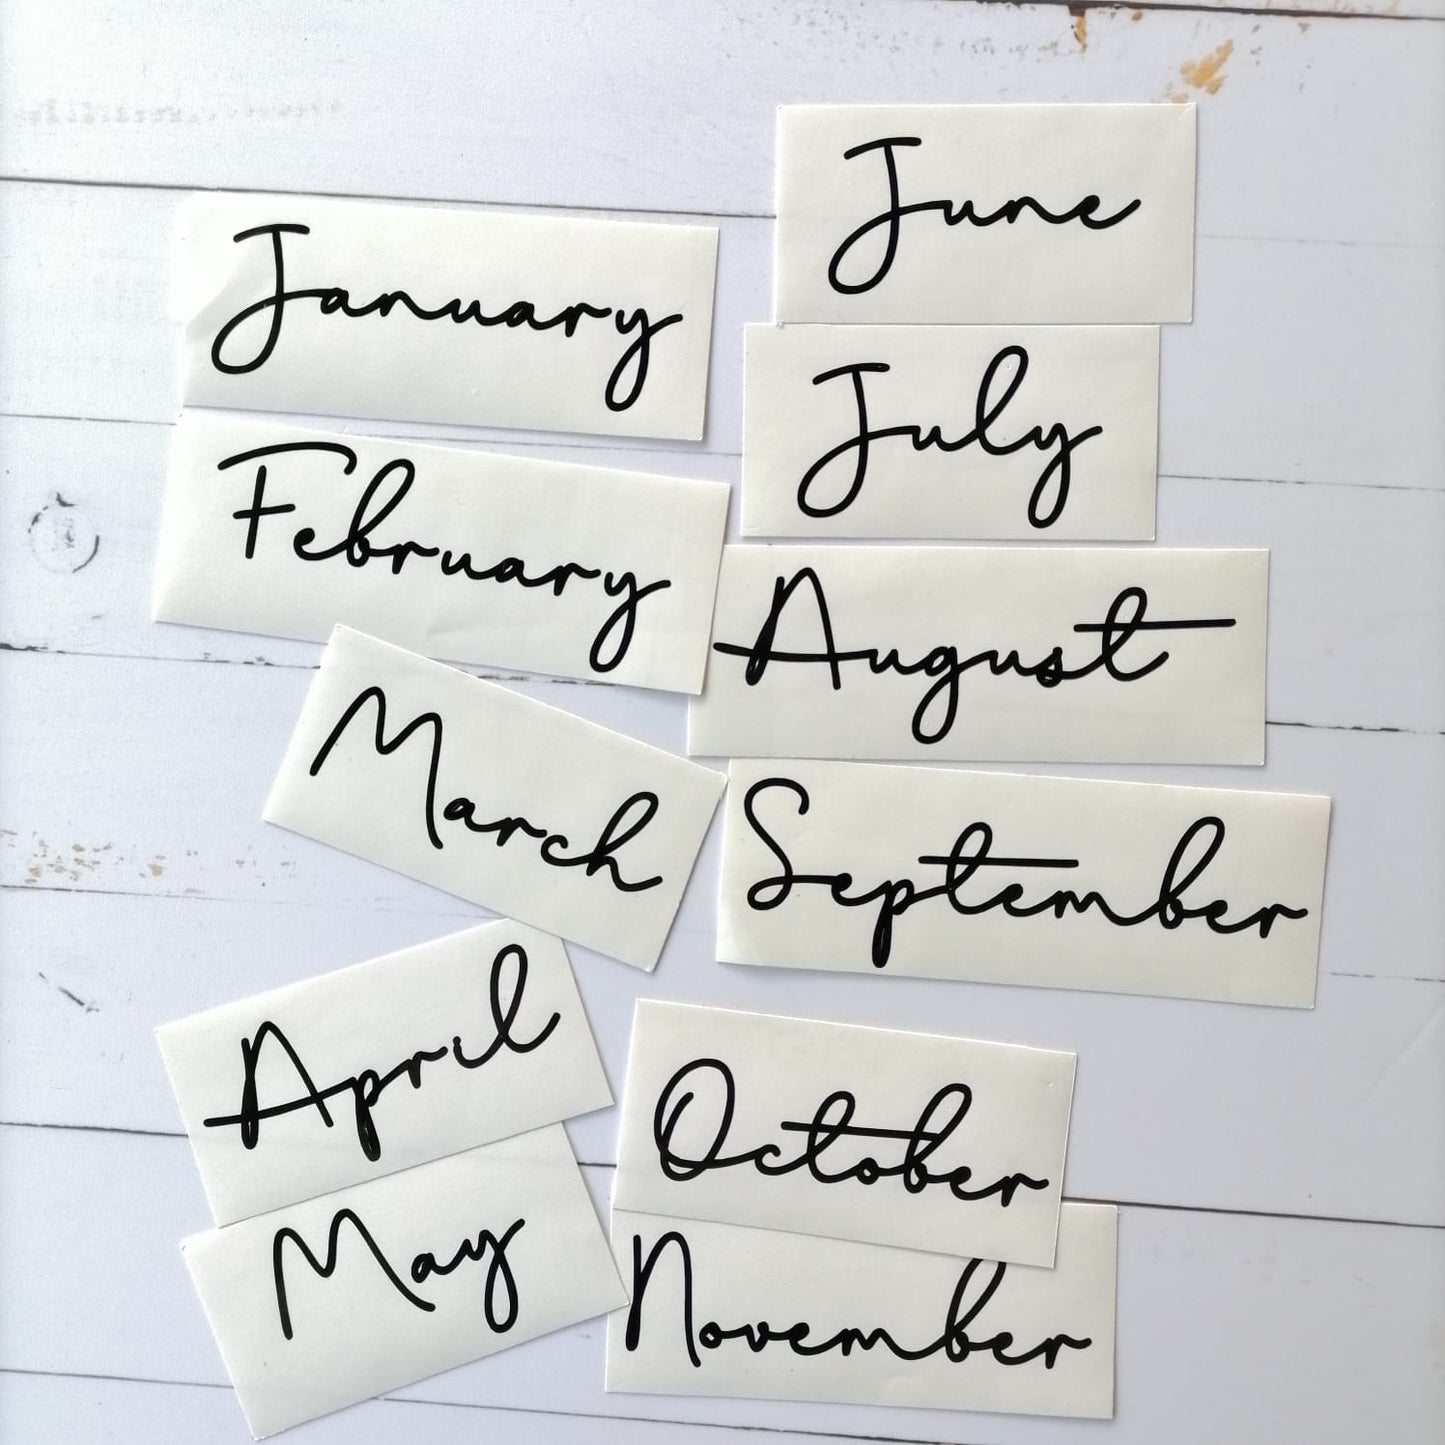 January
February
March
April
May
June
July
August
September
October
November